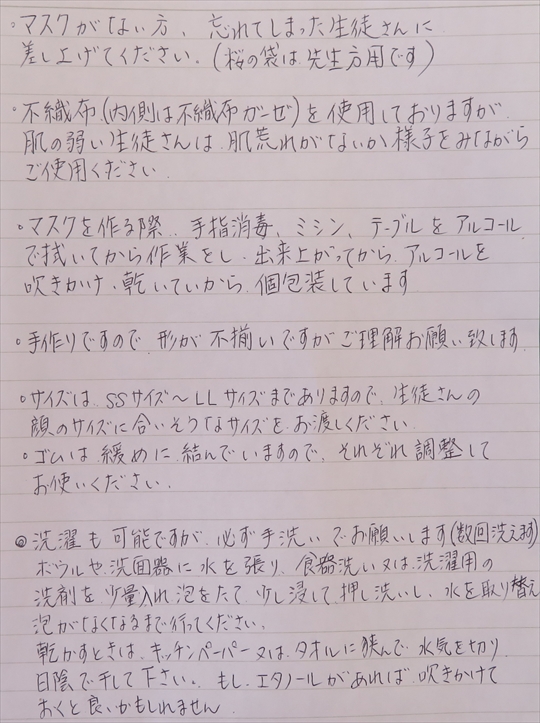 。マスクがない方、忘れてしまった生徒さんに
差し上げてください。(桜の袋は先生方用です)
。不織布(内側は不織布ガーゼ)を使用しておりますが
肌の弱い生徒さんは、肌荒れがないか様子をみながら
ご使用ください
。マスクを作る際、手指消毒、ミシン、テーブルをアルコール
で拭いてから作業をし、出来上がってから、アルコールを
吹きかけ、乾いていから、個包装しています
。手作りですので、形が不揃いですがご理解お願い致します
。サイズは、SSサイズ〜LLサイズまでありますので、生徒さんの
顔のサイズに合いそうなサイズを、お渡しください
。ゴムは緩めに結んでいますので、それぞれ調整して
お使いください。
◎洗濯も可能ですが、必ず手洗いでお願いします(数回洗えます)
ボウルや洗面器に水を張り、食器洗い又は、洗濯用の
洗剤を少量入れ泡をたて、少し浸して、押し洗いし、水を取り替え
泡がなくなるまで行ってください。
乾かすときは、キッチンペーパー又は、タオルに挟んで、水気を切り
日陰で干して下さい。もし、エタノールがあれば、吹きかけて
おくと良いかもしれません